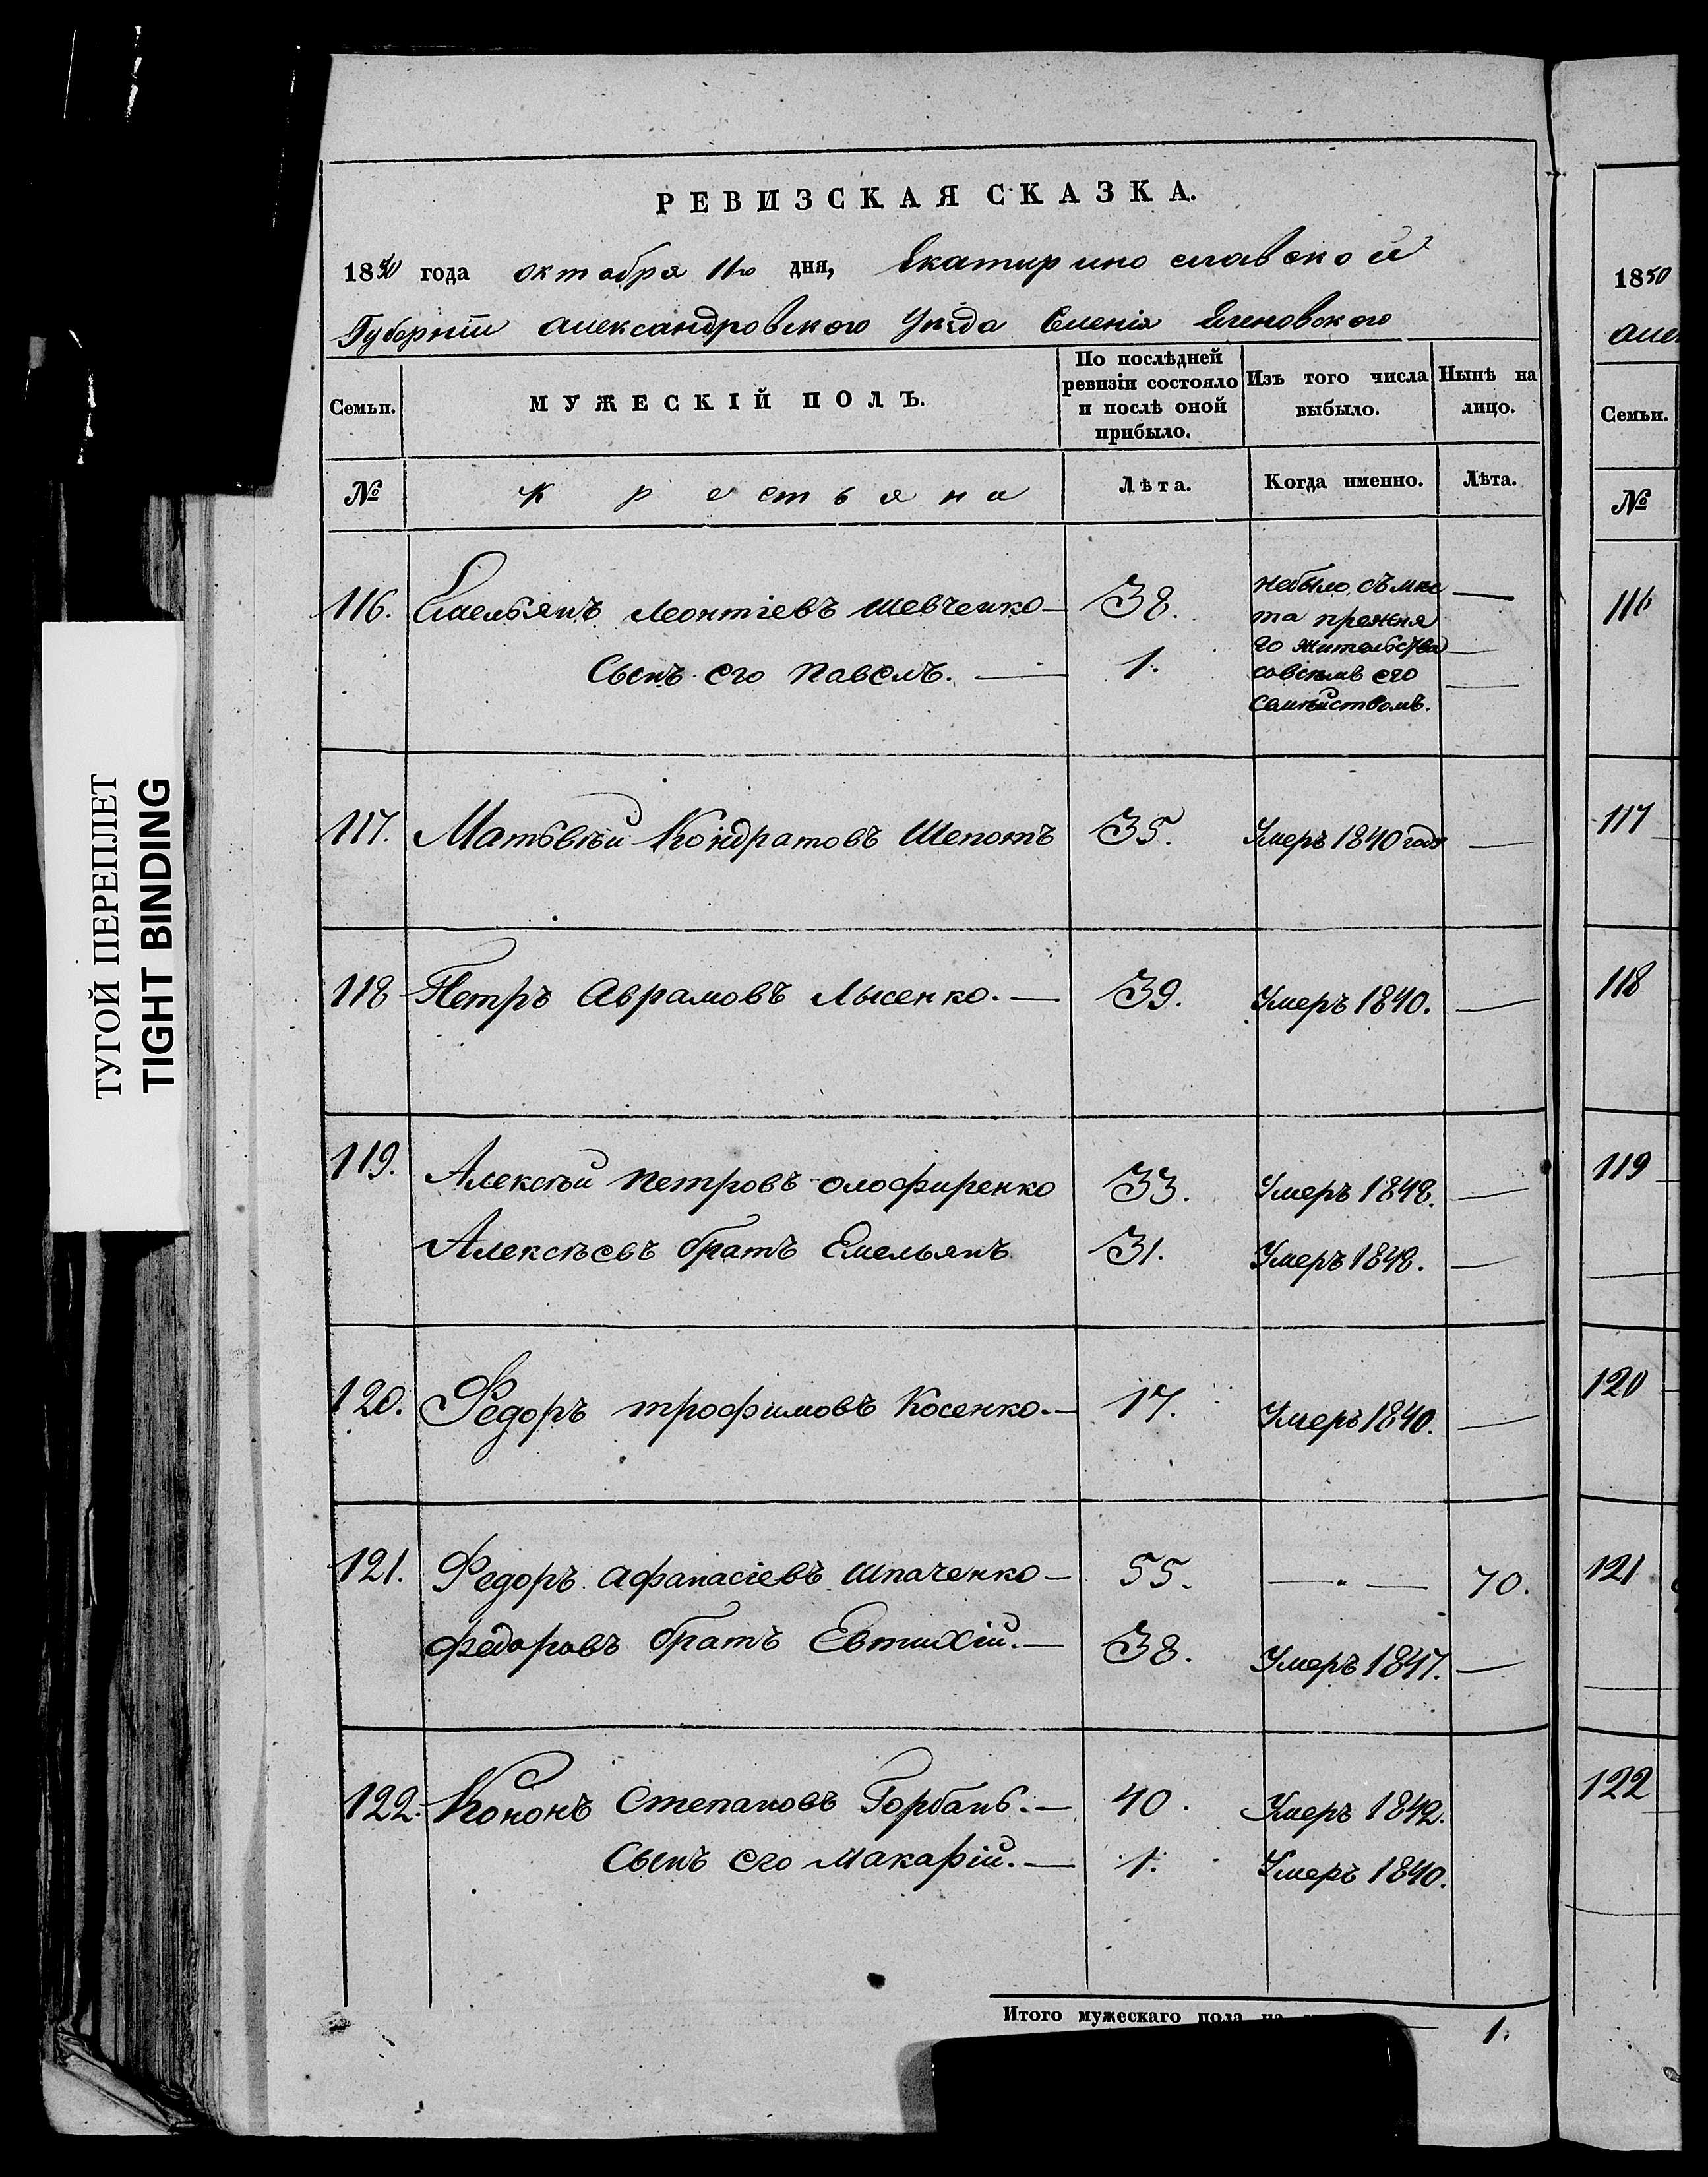 ТУГОЙ ПЕРЕПЛЕТ
TIGHT BINDING
РЕВИЗСКАЯ СКАЗКА.
1850 года октября 11го дня, Екатиринославской
Губерніи александровского Уѣзда Еленовского
Семьи. МУЖЕСКІЙ ПОЛЪ. По послѣдней ревизіи состояло и послѣ оной прибыло. Изъ того числа выбыло. Нынѣ на лицо.
№ Крестьяни Лѣта. Когда именно. Лѣта.
116. Емельянъ Леонтіевъ Шевченко — 38. небыло съ мѣс —
та прежня
го жительства —
Сынъ его Павелъ. — 1. совсемъ его —
семѣйствомъ.
117. Матвѣй Кондратовъ Шепотъ 35. Умеръ 1840 года —
118 Петръ Аврамовъ Лысенко. — 39. Умеръ 1840. —
119. Алексѣй Петровъ Олофиренко 33. Умеръ 1848. —
Алексѣевъ братъ Емельянъ 31. Умеръ 1848. —
120. Федоръ трофимовъ Косенко. — 17. Умеръ 1840. —
121. Федоръ Афанасіевъ Шпаченко — 55. — " — 70.
Федоровъ братъ Евтихій. — 38. Умеръ 1847. —
122. Кононъ Степановъ Горбань. — 40. Умеръ 1842.
Сынъ его Макарій. — 1. Умеръ 1840.
Итого мужескаго пола на 1.
1850
Семьи.
№
116
117
118
119
120
121
122